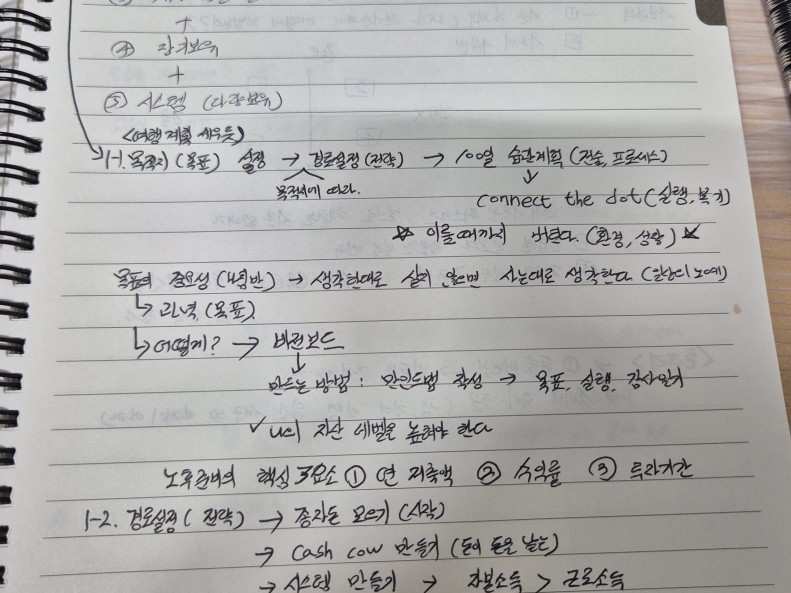 +
④ 장기보유
+
⑤ 시스템 (다량보유)
<여행 계획 세우듯>
1-1. 목적지 (목표) 설정 → 경로설정 (전략) → 100일 습관계획 (전술, 프로세스)
목적지에 따라.
connect the dot (실행, 복기)
☆ 이룰때까지 버틴다. (환경, 상황) ☆
목표의 중요성 (나침반) → 생각한대로 살지 않으면 사는대로 생각한다. (일상의 노예)
↳ 과녁 (목표)
↳ 어떻게? → 비전보드
만드는 방법 : 마인드맵 작성 → 목표, 실행, 감사일기
✓ 나의 자산 레벨을 높여야 한다
노후준비의 핵심 3요소 ① 연 저축액 ② 수익률 ③ 투자기간
1-2. 경로설정 (전략) → 종자돈 모으기 (시작)
→ Cash cow 만들기 (돈이 돈을 낳는)
→ 시스템 만들기 → 자본소득 > 근로소득